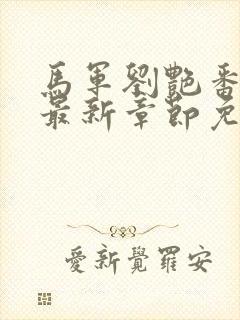 馬軍劉艷番
最新章節免
愛新覺羅安